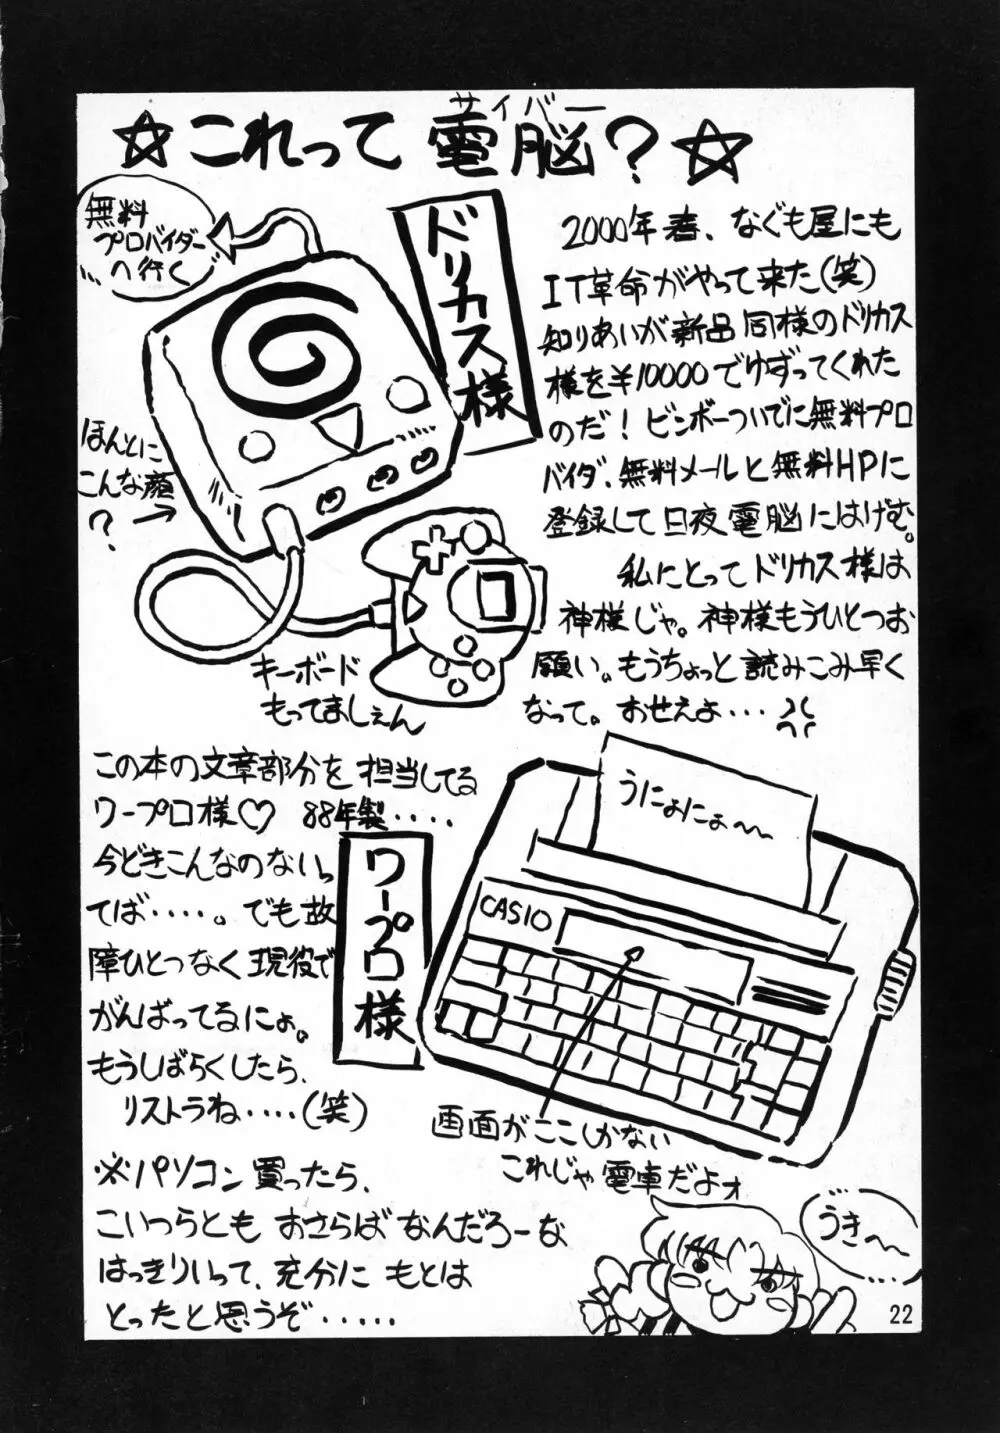 ☆これって電脳?☆
サイバー
無料
プロバイダー
へ行く
ドリカス様
2000年春、なぐも屋にも
IT革命がやって来た(笑)
知りあいが新品同様のドリカス
様を¥10000でゆずってくれた
のだ!ビンボーついでに無料プロ
バイダ、無料メールと無料HPに
登録して日夜電脳にはげむ。
私にとってドリカス様は
神様じゃ。神様もうひとつお
願い。もうちょっと読みこみ早く
なって。おせえよ・・・
ほんとに
こんな顔
?→
キーボード
もってましぇん
この本の文章部分を担当してる
ワープロ様♡ 88年製・・・・
今どきこんなのないっ
てば・・・・。でも故
障ひとつなく現役で
がんばってるにょ。
もうしばらくしたら、
リストラね・・・・(笑)
ワープロ様
うにょにょ〜
CASIO
画面がここしかない
これじゃ電車だよォ
※パソコン買ったら、
こいつらともおさらばなんだろーな
はっきりいって、充分にもとは
とったと思うぞ・・・・・
うき〜
22